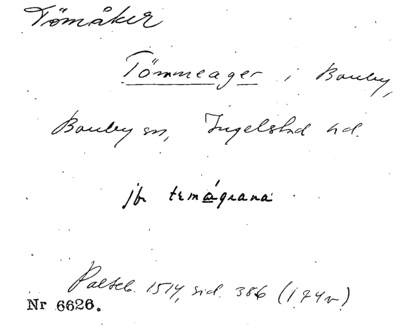 Tömåker
Tömmeager i Bouby,
Bouby sn, Ingelstad hd.
jfr temágrana
Palteb. 1514, sid. 386 (174v)
Nr 6626.